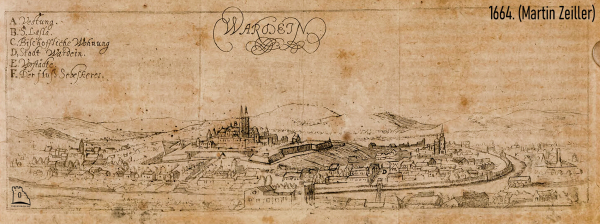 WARDEIN
1664. (Martin Zeiller)
A. Vestung.
B. S. Lasla.
C. Bischoffliche Wohnung
D. Stadt Wardein.
E. Vorstädte.
F. Der fluß Sebeskeres.